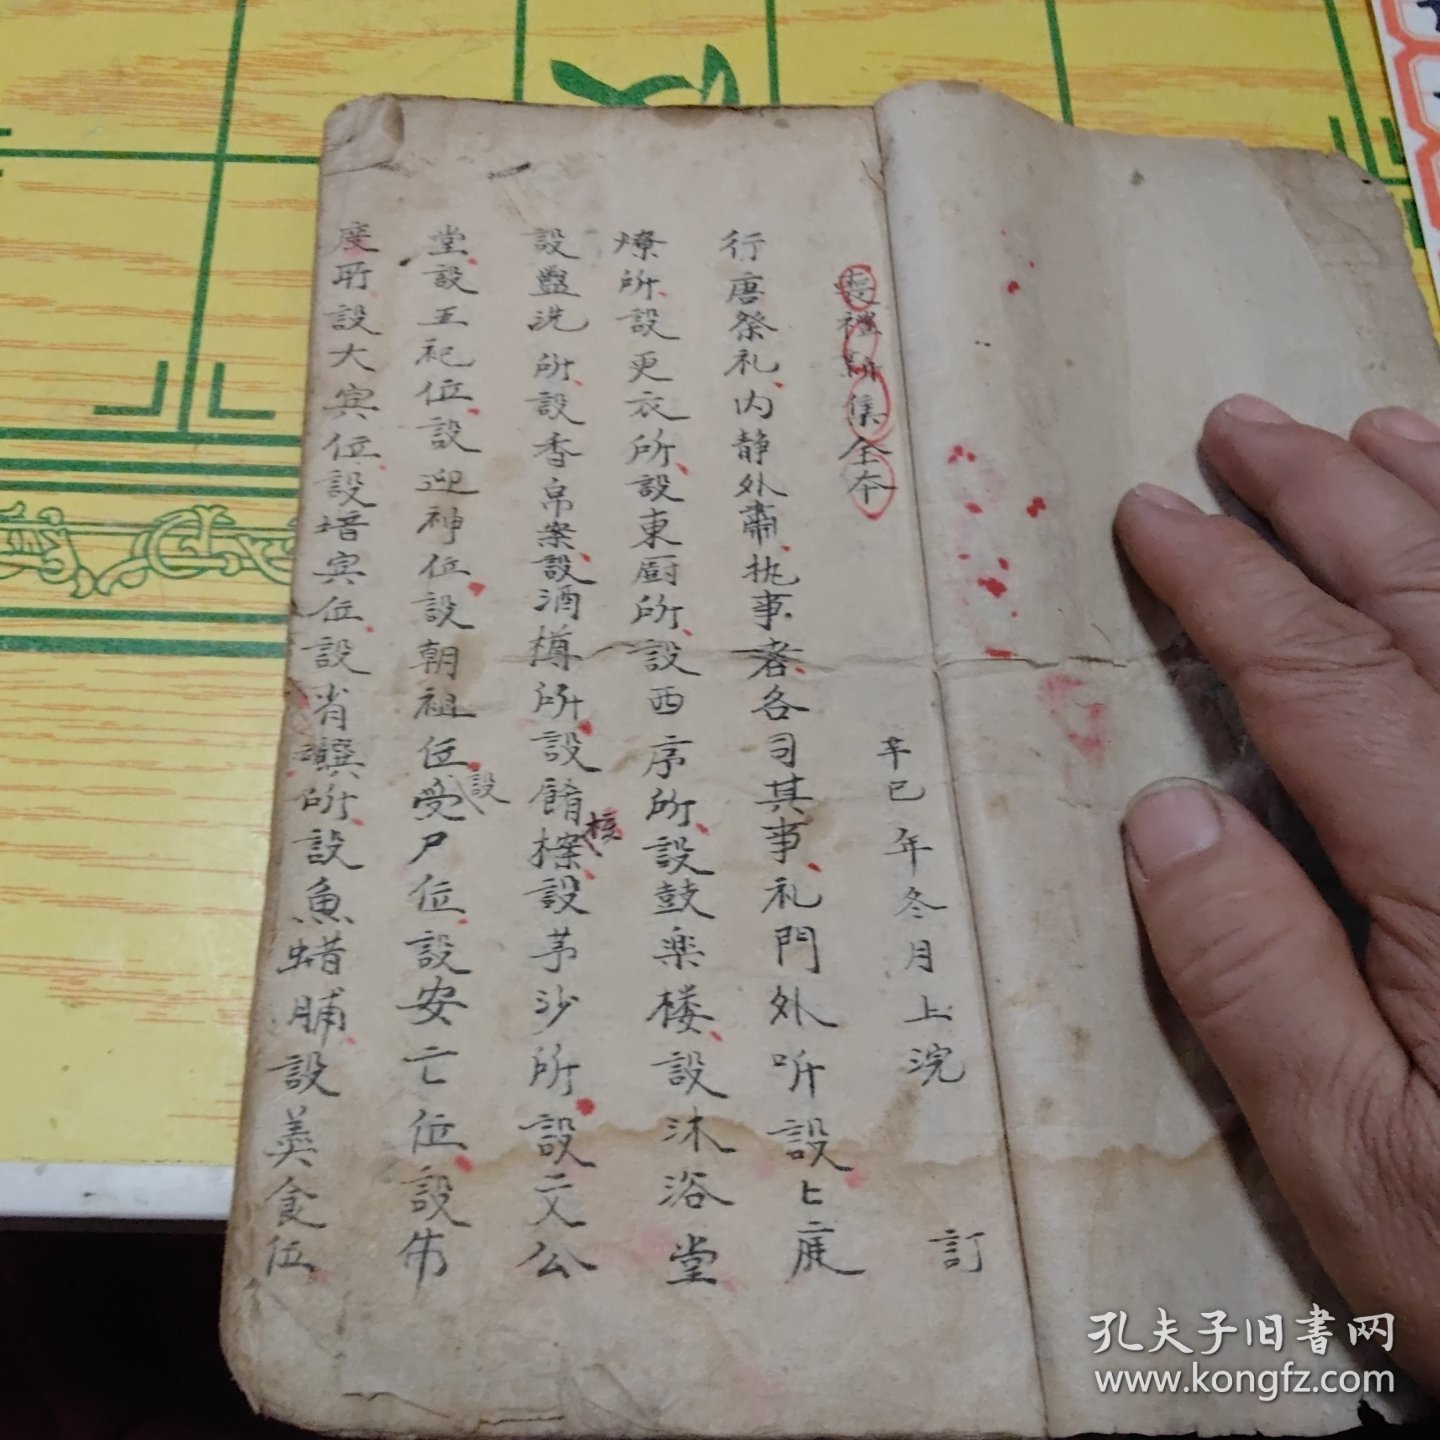 喪禮新集全本
辛巳年冬月上浣 訂
行唐祭礼、内静外肅、执事者、各司其事、礼門外听設上庭
燎所、設更衣所、設東厨所、設西序所、設鼓楽楼、設沐浴堂
設盥洗所、設香帛案、設酒樽所、設餚核檺、設茅沙所、設文公
堂、設五祀位、設迎神位、設朝祖位、設受尸位、設安亡位、設帛
度所設大宾位、設暗宾位、設省饌所、設魚蜡脯、設美食位
孔夫子旧書网
www.kongfz.com